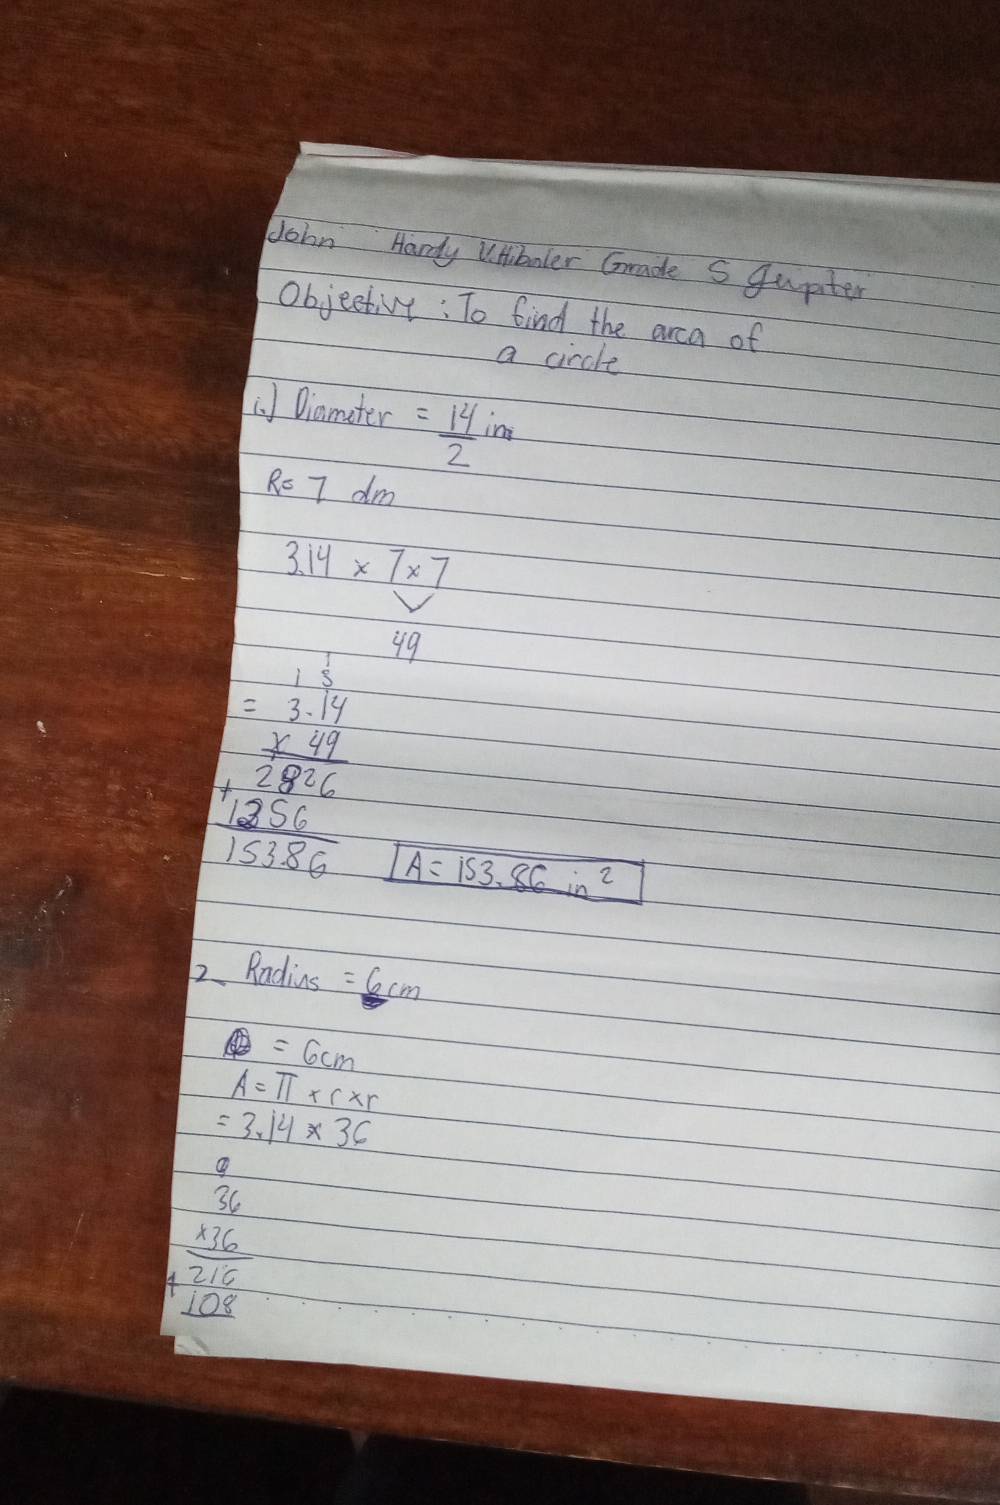 John Hardy V. Hibaler Grade 5 Jupiter
Objective : To find the area of
a circle
1.) Diameter = 14 in
2
R= 7 dm
3.14 × 7 × 7
49
1
1 3
= 3.14
x 49
2826
+
1256
153.86 A = 153.86 in 2
2. Radius = 6 cm
= 6cm
A = π × r × r
= 3.14 × 36
36
×36
216
+
108